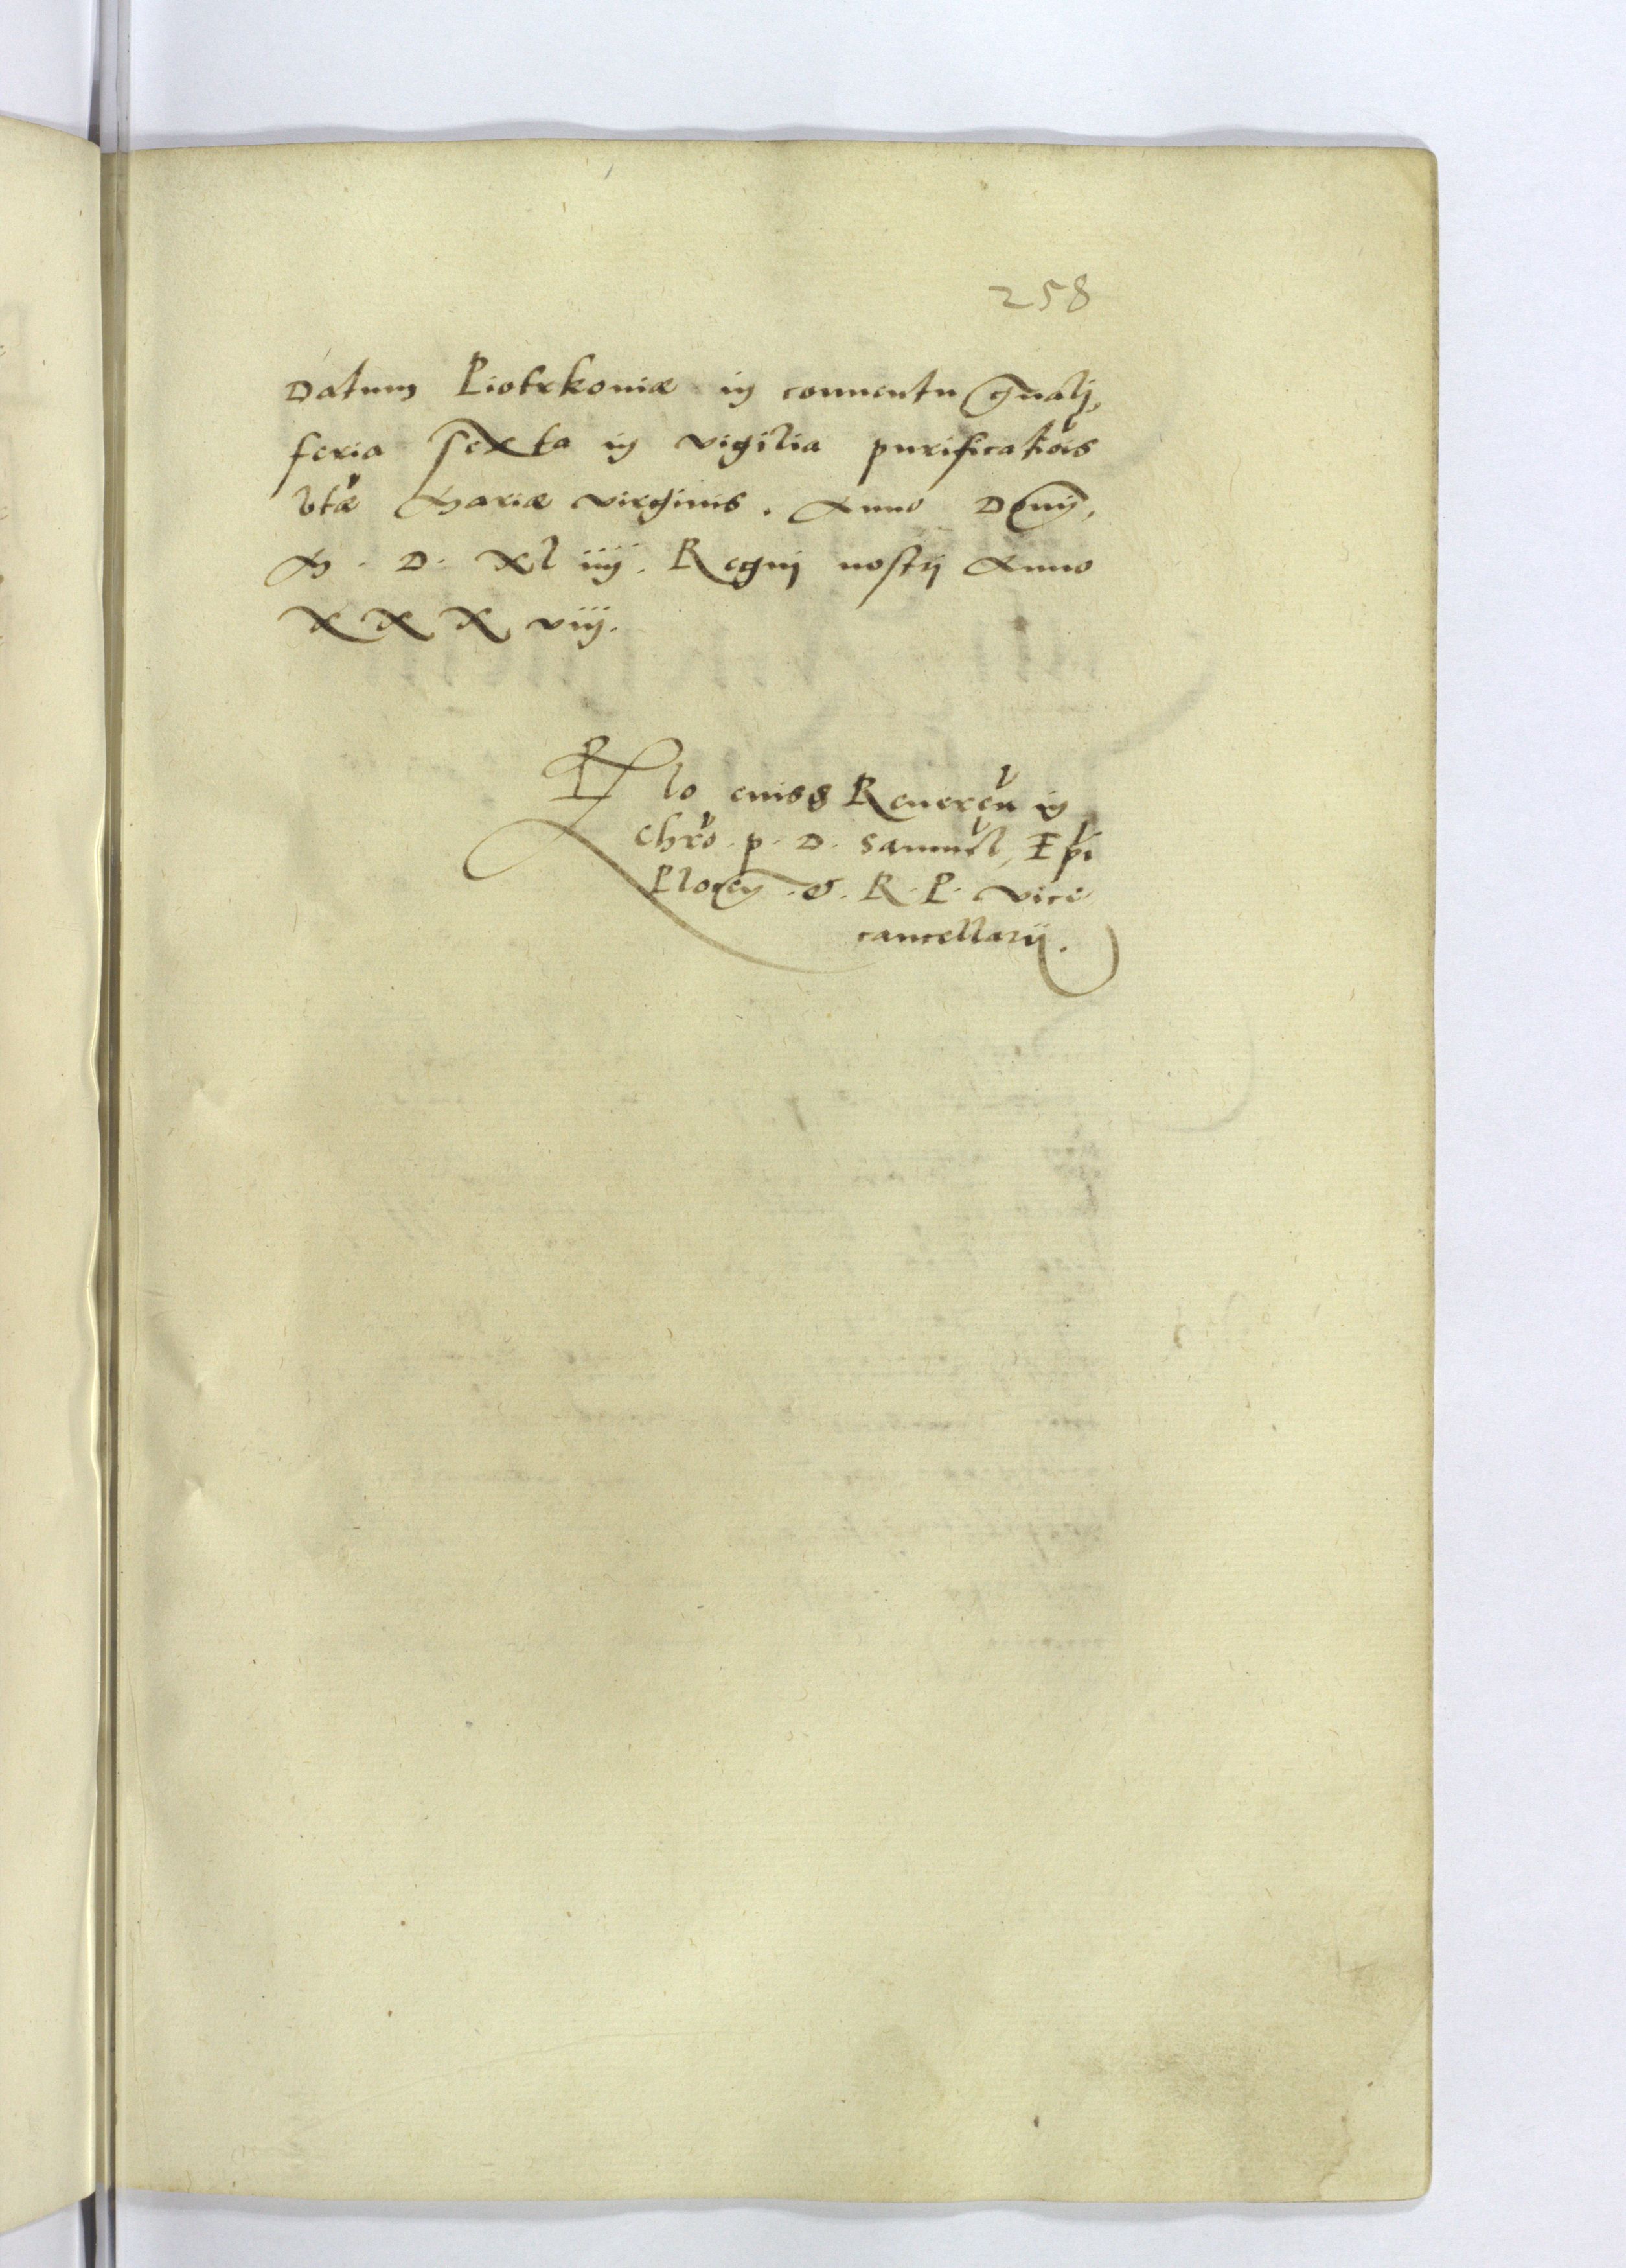 258
Datum Piotrkoviæ in conventu gnali,
feria sexta in vigilia purificatiois
btæ Mariæ virginis. Anno Dni,
M. D. XL iiij. Regni nostri Anno
XXX viij.
Rlo eiusd Reveren in
Chro. p. D. Samuel, Epi
Plocen. &. R. P. vice
cancellarij.